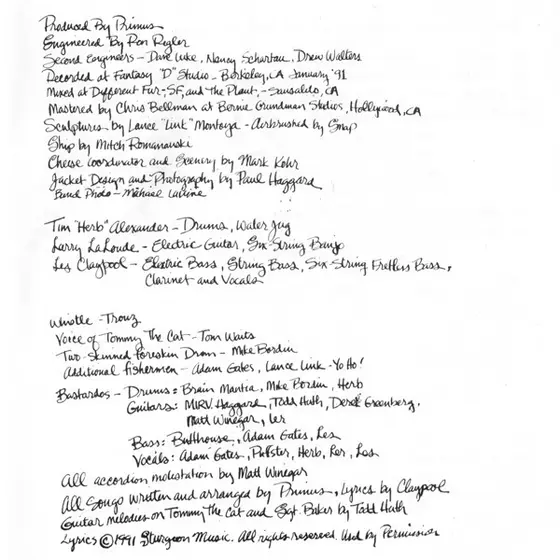 Produced By Primus
Engineered By Ron Rigler
Second Engineers - Dave Luke, Nancy Scharlau, Drew Walters
Recorded at Fantasy "D" Studio - Berkeley, CA January '91
Mixed at Different Fur - SF, and the Plant, - Sausaldo, CA
Mastered by Chris Bellman at Bernie Grundman Studios, Hollywood, CA
Sculptures by Lance "Link" Montoya - Airbrushed by Snap
Ship by Mitch Romanauski
Cheese Coordinator and Scenery by Mark Kohr
Jacket Design and Photography by Paul Haggard
Band Photo - Michael LaVine
Tim "Herb" Alexander - Drums, Water Jug
Larry LaLonde - Electric Guitar, Six-String Banjo
Les Claypool - Electric Bass, String Bass, Six-String Fretless Bass,
Clarinet and Vocals
Whistle - Trouz
Voice of Tommy The Cat - Tom Waits
Two-Skinned Foreskin Drum - Mike Bordin
Additional fishermen - Adam Gates, Lance Link - Yo Ho!
Bastardos - Drums: Brain Mantia, Mike Bordin, Herb
Guitars: MIRV Haggard, Todd Huth, Derek Greenberg,
Matt Winegar, Ler
Bass: Butthouse, Adam Gates, Les
Vocals: Adam Gates, Puffster, Herb, Ler, Les
All accordion molestation by Matt Winegar
All Songs Written and arranged by Primus, Lyrics by Claypool
Guitar melodies on Tommy The Cat and Sgt. Baker by Todd Huth
Lyrics © 1991 Sturgeon Music. All rights reserved. Used by Permission